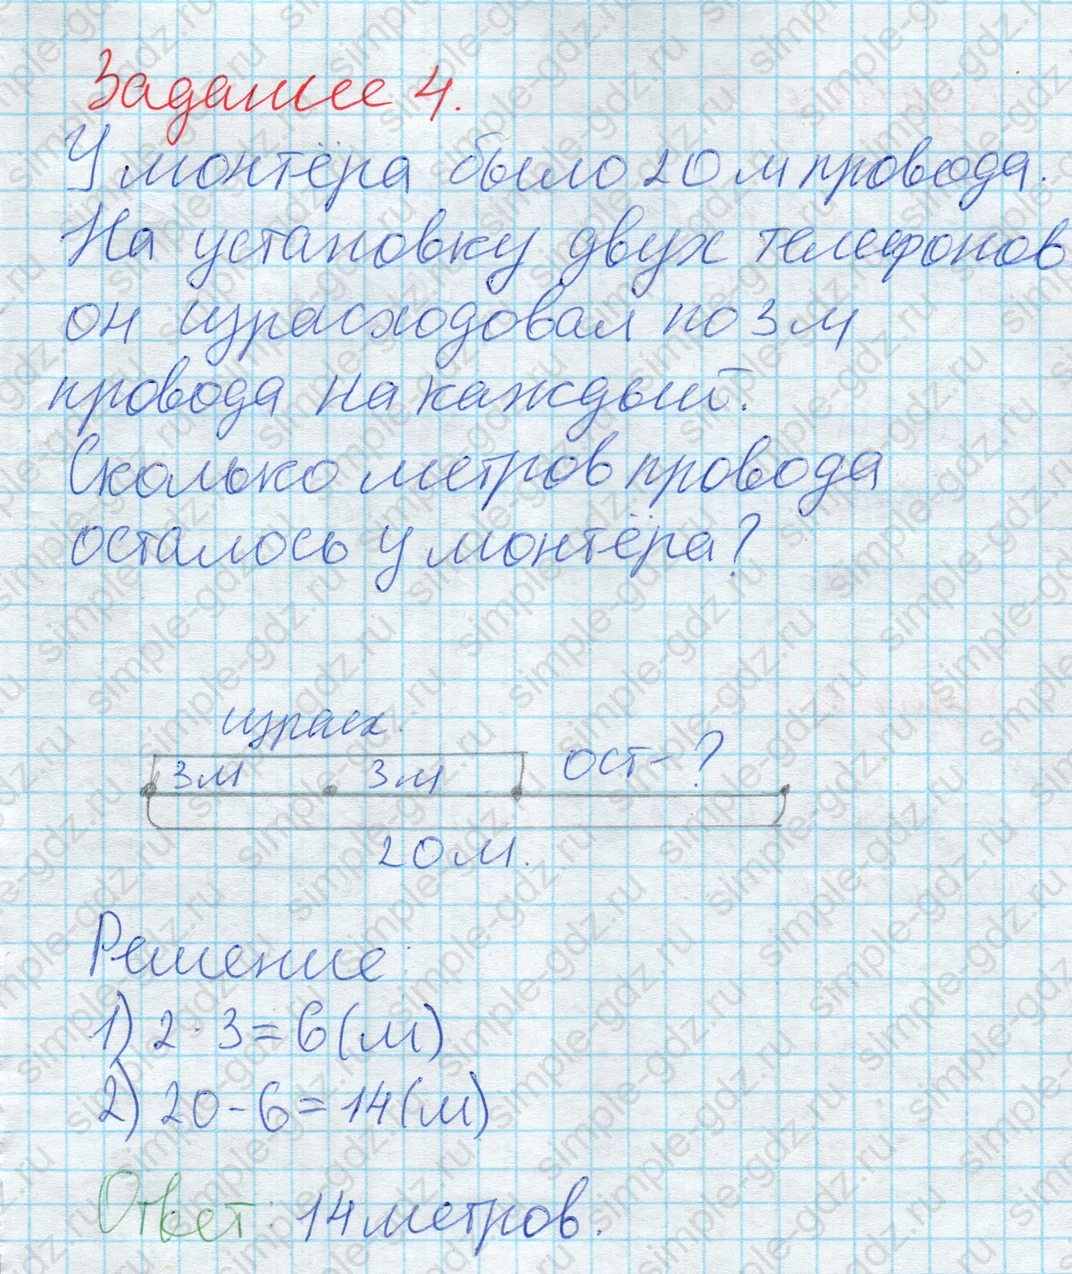 Задание 4.
У монтёра было 20 м провода.
На установку двух телефонов
он израсходовал по 3 м
провода на каждый.
Сколько метров провода
осталось у монтёра?
израсх.
3м 3м ост-?
20м.
Решение:
1) 2·3=6(м)
2) 20-6=14(м)
Ответ: 14 метров.
simple-gdz.ru